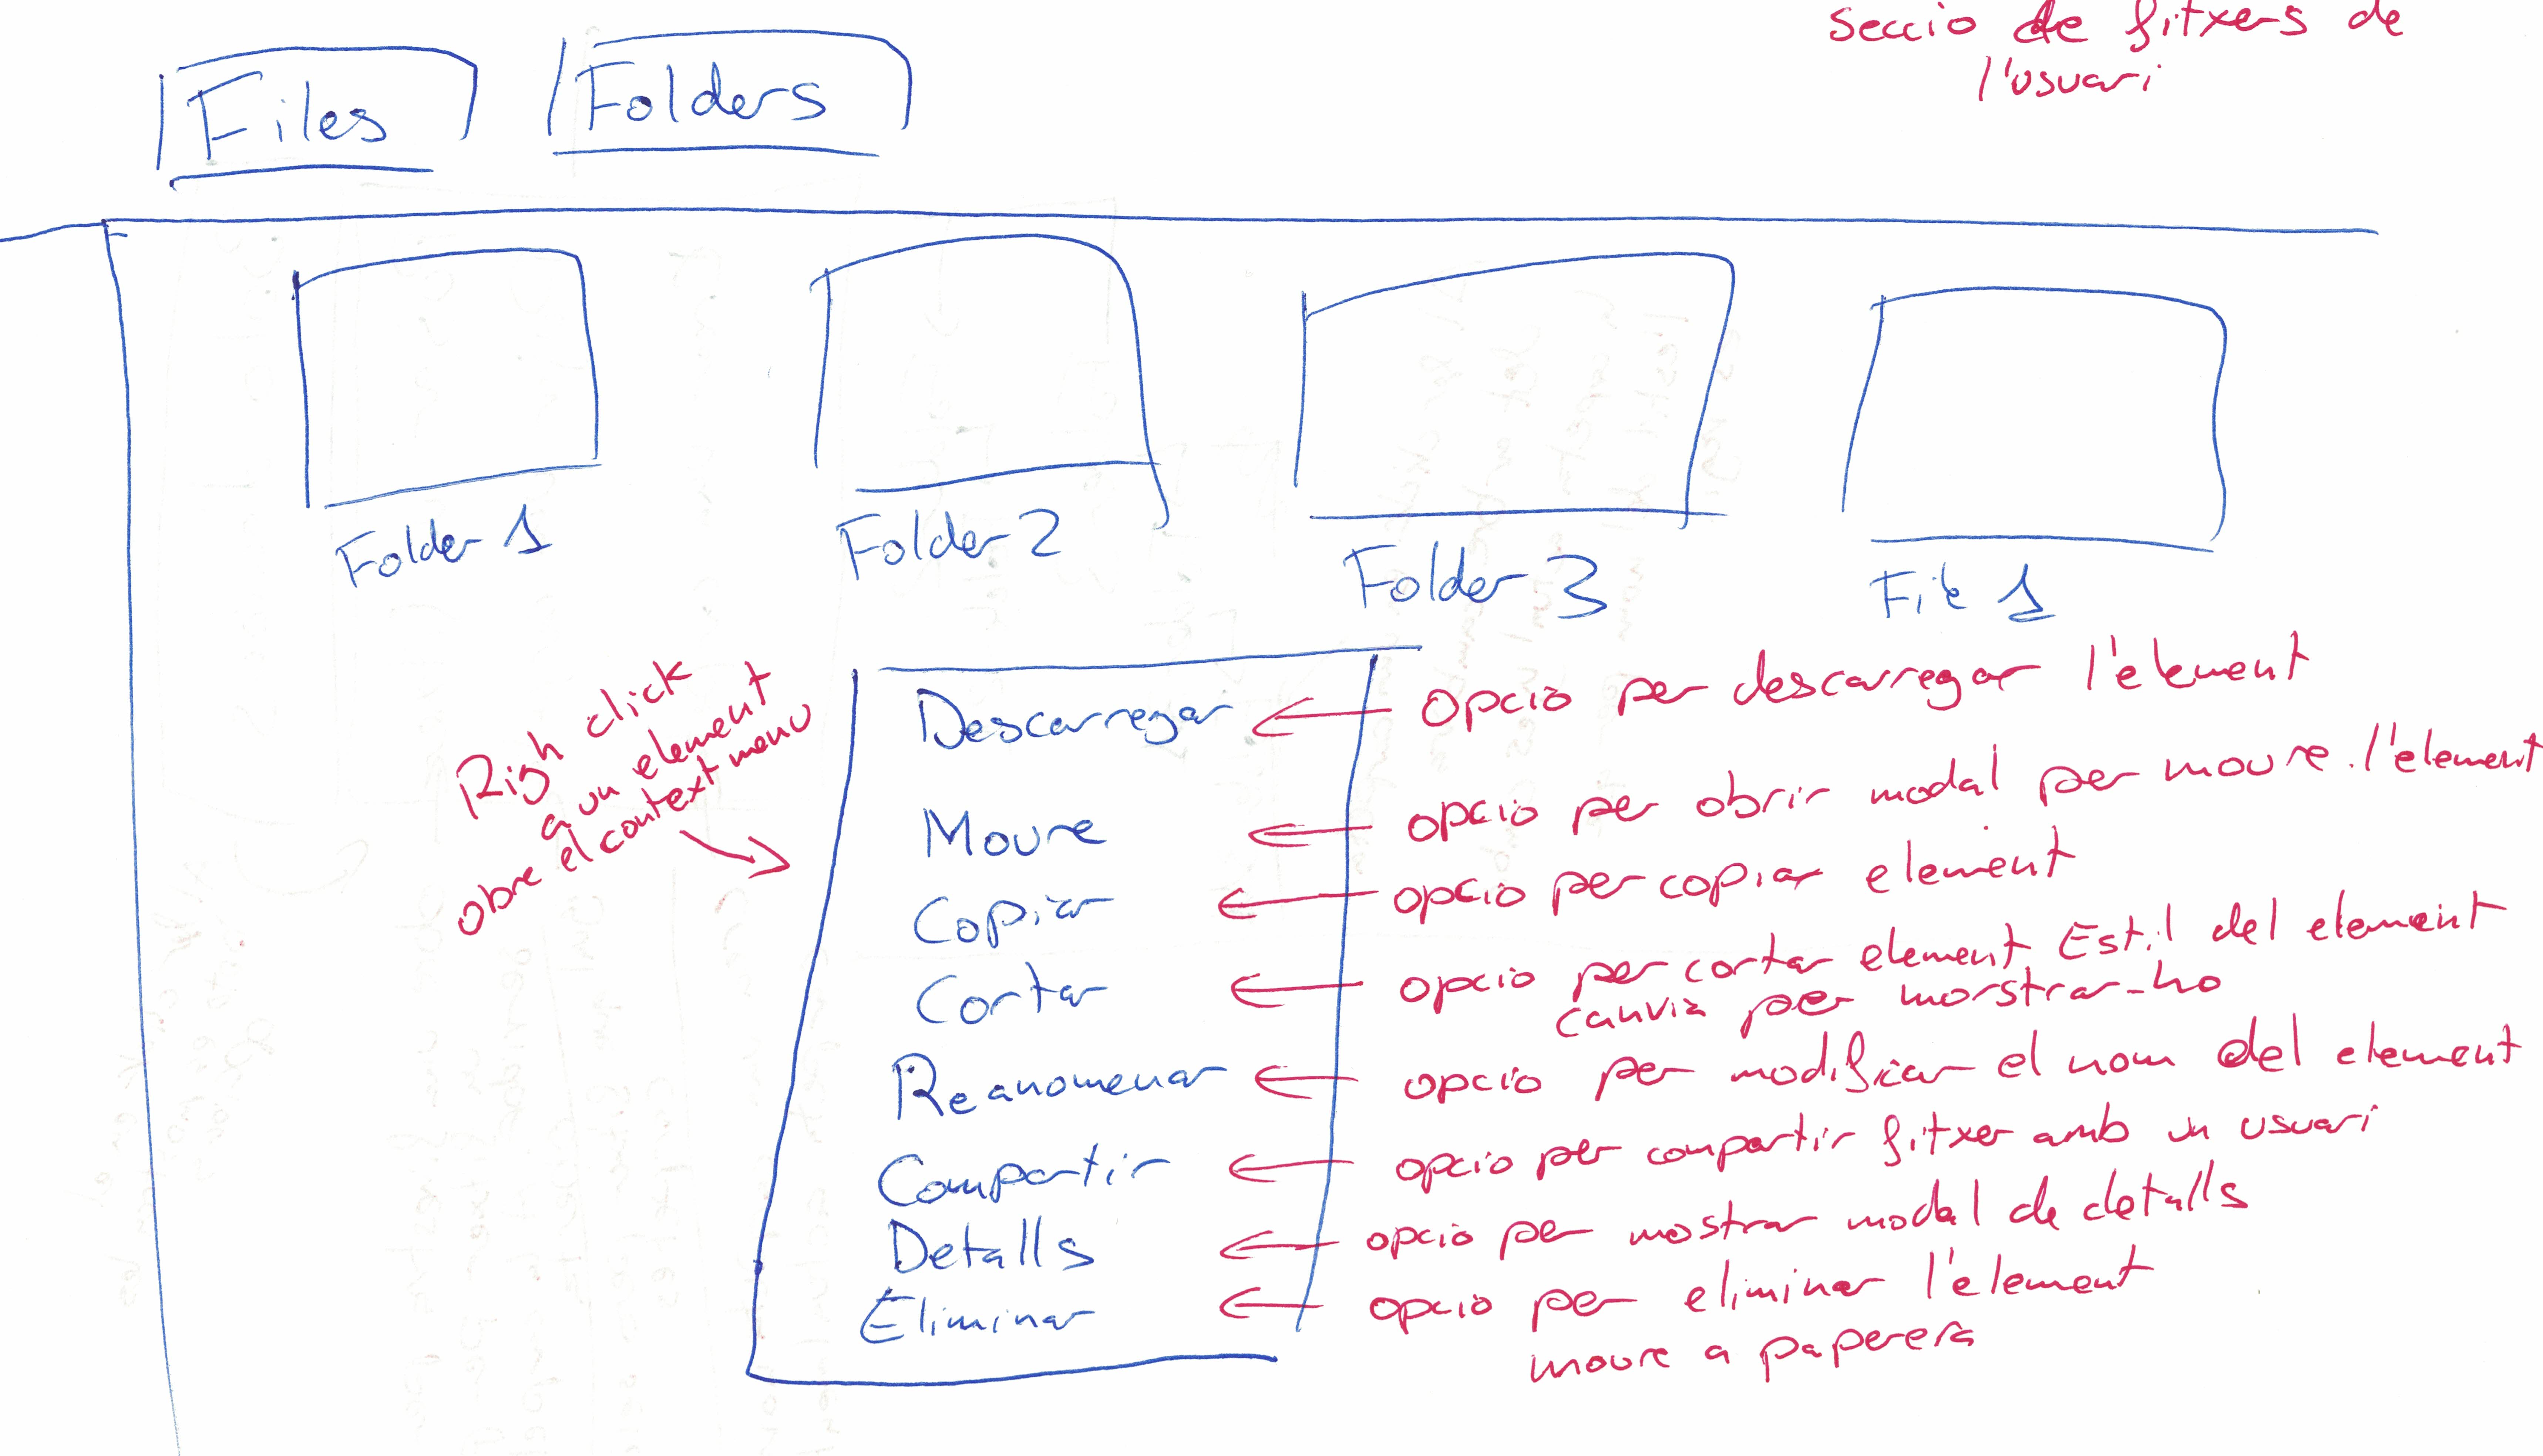 seccio de fitxers de
l'usuari
Files
Folders
Folder 1
Folder 2
Folder 3
File 1
Righ click
a un element
obre el context menu
Descarregar
opcio per descarregar l'element
Moure
opcio per obrir modal per moure l'element
Copiar
opcio per copiar element
Cortar
opcio per cortar element. Estil del element
canvia per morstrar-ho
Reanomenar
opcio per modificar el nom del element
Compartir
opcio per compartir fitxer amb un usuari
Detalls
opcio per mostrar modal de detalls
Eliminar
opcio per eliminar l'element
moure a paperera